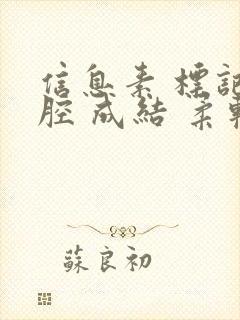 信息素標記
腔成結柔軟
蘇良初